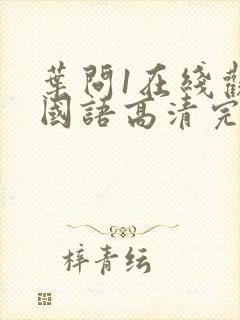 葉問1在綫觀
國語高清完
梓青纭